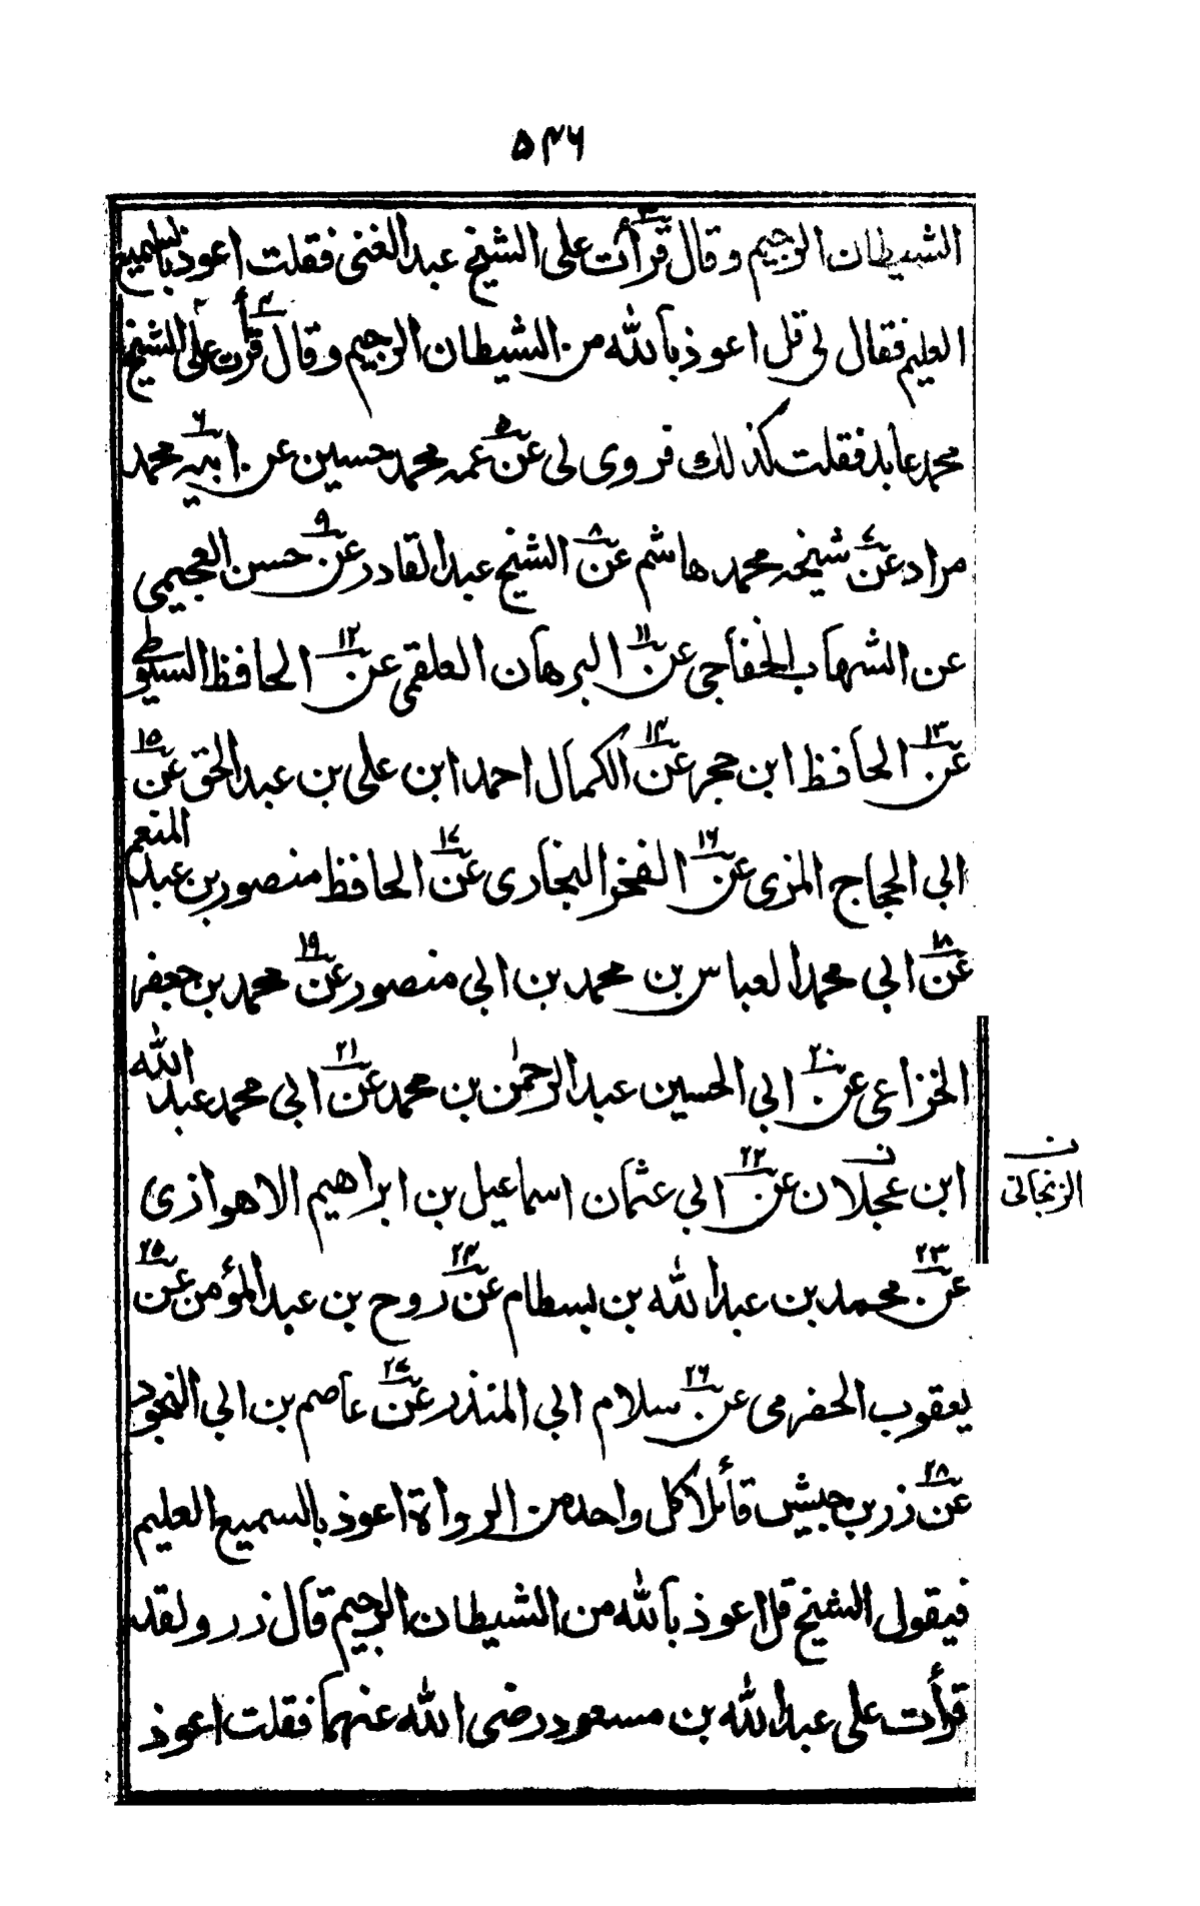 ۵۴۶
الشيطان الرجيم وقال قرأت۳ على الشيخ عبدالغنى فقلت اعوذ بالسميع
العليم فقال لى قل اعوذ بالله من الشيطان الرجيم وقال قرأت۴ على الشيخ
محمد عابد فقلت كذلك فروى لى عن۵ عمه محمد حسين عن۶ ابيه محمد
مراد عن۷ شيخه محمد هاشم عن۸ الشيخ عبدالقادر عن۹ حسن العجيمى
عن الشهاب الخفاجى عن۱۱ البرهان العلقمى عن۱۲ الحافظ السيوطى
عن۱۳ الحافظ ابن حجر عن۱۴ الكمال احمد ابن على بن عبدالحق عن۱۵
ابى الحجاج المزى عن۱۶ الفخر البخارى عن۱۷ الحافظ منصور بن عبدالمنعم
عن۱۸ ابى محمد العباس بن محمد بن ابى منصور عن۱۹ محمد بن جعفر
الخزاعى عن۲۰ ابى الحسين عبدالرحمٰن بن محمد عن۲۱ ابى محمد عبدالله
ابن عجلان عن۲۲ ابى عثمان اسماعيل بن ابراهيم الاهوازى
ن
الزنجانى
عن۲۳ محمد بن عبدالله بن بسطام عن۲۴ روح بن عبدالمؤمن عن۲۵
يعقوب الحضرمى عن۲۶ سلام ابى المنذر عن۲۷ عاصم بن ابى النجود
عن۲۸ زر بن حبيش قائلا كل واحد من الرواة اعوذ بالسميع العليم
فيقول الشيخ قل اعوذ بالله من الشيطان الرجيم قال زر ولقد
قرأت على عبدالله بن مسعود رضى الله عنهما فقلت اعوذ